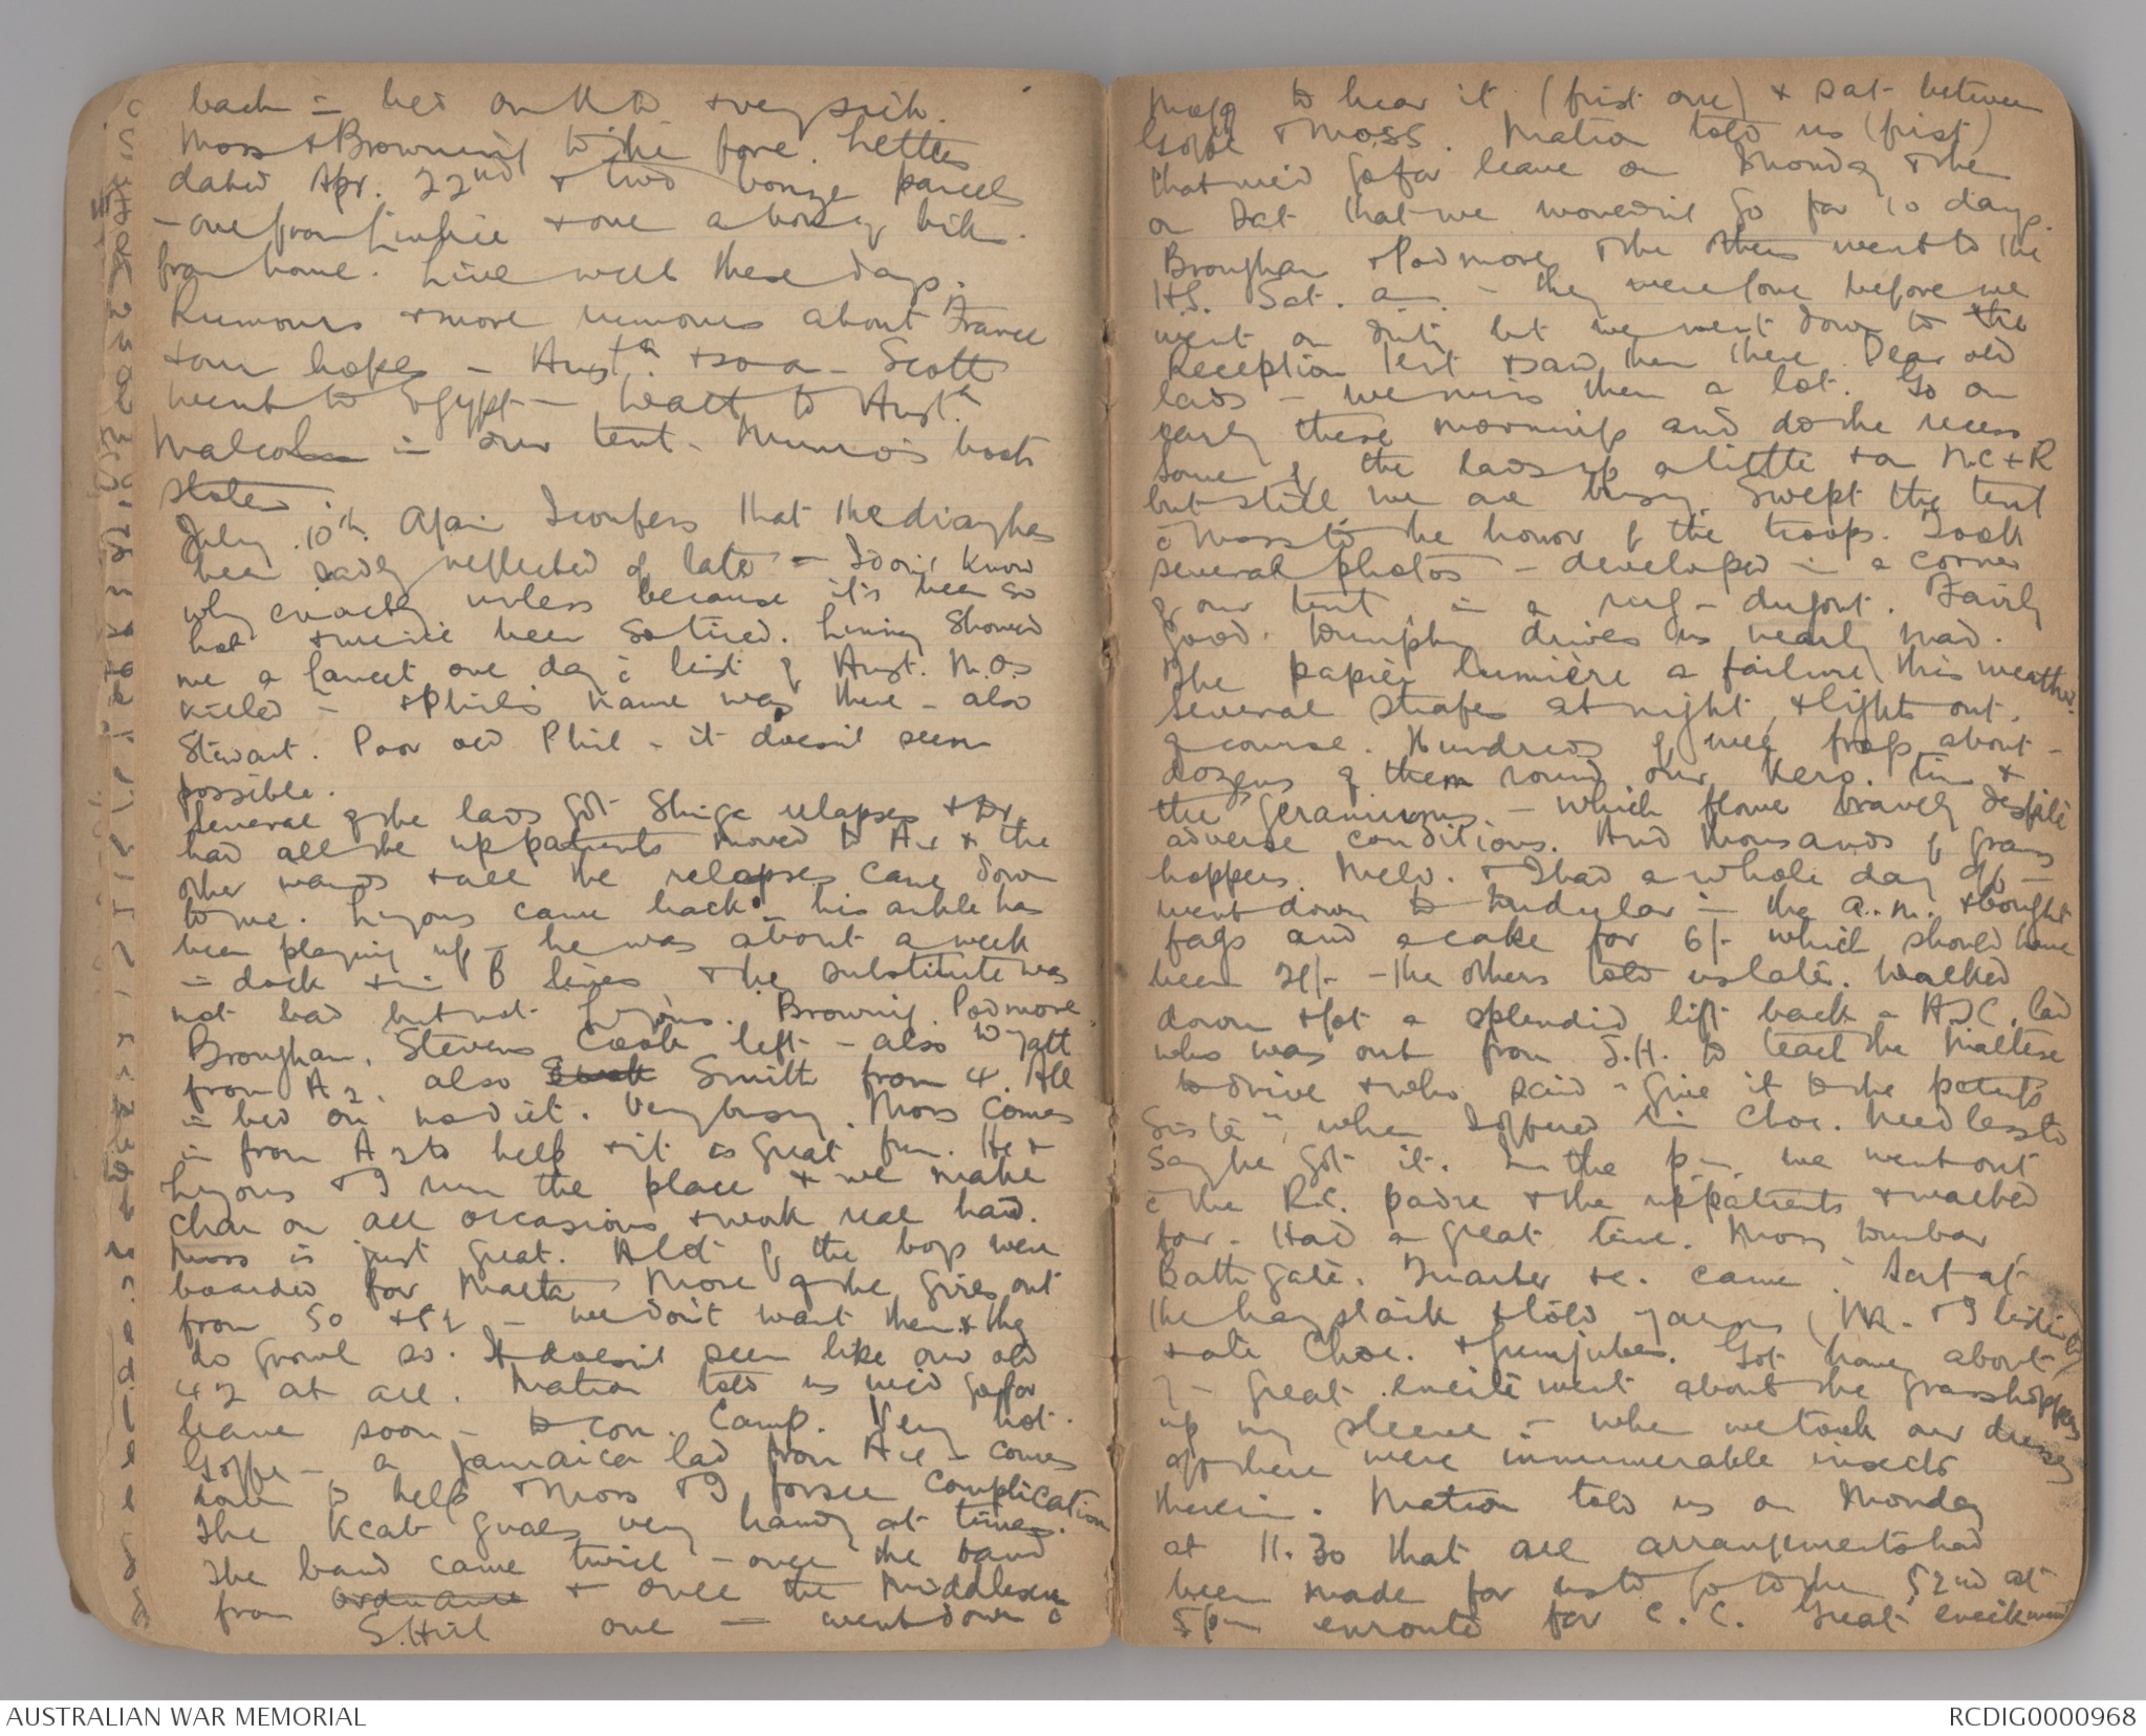 back in bed on N D & very sick.
Moss & Browning to the fore. Letters
dated Apr. 22nd & two bonze parcels
- one from & one a bonzy
from home. Live well these days.
Rumours & more rumours about France
& our hopes - Austa. & so on - Scott
went to Egypt - Watt to Austa.
Malcolm in our tent - Munro's boots
stolen.
July 10th. Again I confess that the diary has
been sadly neglected of late - I don't know
why exactly unless because it's been so
hot & we've been so tired. showed
me a Lancet one day c̄ list of Aust. M.O.s
killed - & Phil's name was there - also
Stewart. Poor old Phil - it doesn't seem
possible.
Several of the lads got Shiga relapses & Dr.
had all the up patients moved to & the
other wards & all the relapses came down
to me. Lyons came back - his ankle has
been playing up - he was about a week
in dock & in B lines & the substitute was
not bad but not Lyons. Browning, Podmore,
Brougham, Stevens, Cook left - also Wyatt
from A2, also Smith from 4. All
in bed on no diet. Very busy. Moss comes
in from A2 to help & it is great fun. He &
Lyons & I run the place & we make
char on all occasions & work real hard.
Moss is just great. A lot of the boys were
boarded for Malta. More of the girls out
from 50 & 52 - we don't want them & they
do growl so. It doesn't seem like our old
42 at all. Matron told us we'd go for
leave soon - to con. Camp. Very hot.
Goffe - a Jamaica lad from - comes
down to help & Moss & I forsee complication
The Kcab goes very handy at times.
The band came twice - once the band
from ordnance & once the Middlesex
S.Hill one - went down c̄
Moss to hear it (first one) & sat between
Goffe & Moss. Matron told us (first)
that we'd go for leave on Monday & then
on Sat that we wouldn't go for 10 days.
Brougham & Podmore & the others went to the
H.S. Sat. am. - they were gone before we
went on duty but we went down to the
Reception Tent & saw them there. Dear old
lads - we miss them a lot. Go on
early these mornings and do the recess.
Some of the lads up a little & on M.C & R
but still we are busy. Swept the tent
c̄ Moss to the honor of the troops. Took
several photos - developed in a corner
of our tent, in a rug-dugout. Fairly
good. drives us nearly mad.
The papier lumière a failure this weather.
Several strafes at night, & lights out,
of course. Hundreds of wee frogs about -
dozens of them round our kero. tin &
the geraniums - which flower bravely despite
adverse conditions. And thousands of grass
hoppers. Melv. & I had a whole day off -
went down to Dudular in the a.m. & bought
fags and a cake for 6/- which should have
been 2/- - the others told us late. Walked
down & got a splendid lift back - ASC. lad
who was out from S.H. to teach the Maltese
to drive & who said "give it to the patients
Sister", when I offered him Choc. Needless to
say he got it. In the p.m. we went out
c̄ the R.C. padre & the up patients & walked
far. Had a great time. Moss, Dunbar,
Bathgate, &c. came. Sat at
the haystack & told yarns (M. & I listening)
& ate Choc. & gumjubes. Got home about
7 - great excitement about the grasshopper
up my sleeve - when we took our dresses
off there were innumerable insects
therein. Matron told us on Monday
at 11.30 that all arrangements had
been made for us to go to the 52nd at
5 pm enroute for C.C. Great excitement
AUSTRALIAN WAR MEMORIAL
RCDIG0000968